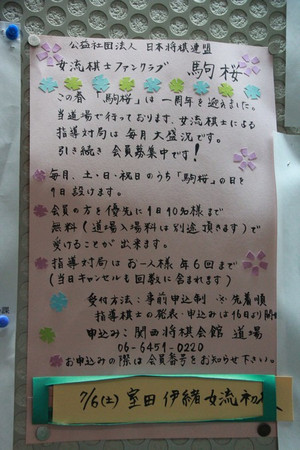 公益社団法人 日本将棋連盟
女流棋士ファンクラブ 駒桜
この春「駒桜」は一周年を迎えました。
当道場で行っております、女流棋士による
指導対局は毎月大盛況です。
引き続き会員募集中です!
毎月、土・日・祝日のうち「駒桜」の日を
1日設けます。
会員の方を優先に1日10名様まで
無料(道場入場料は別途頂きます)で
受けることが出来ます。
指導対局はお一人様年6回まで
(当日キャンセルも回数に含まれます)
受付方法:事前申込制 ※先着順
指導棋士の発表・申込みは16日より開始
申込み:関西将棋会館 道場
06-6451-0220
お申込みの際は会員番号をお知らせ下さい。
7/6(土) 室田伊緒女流初段